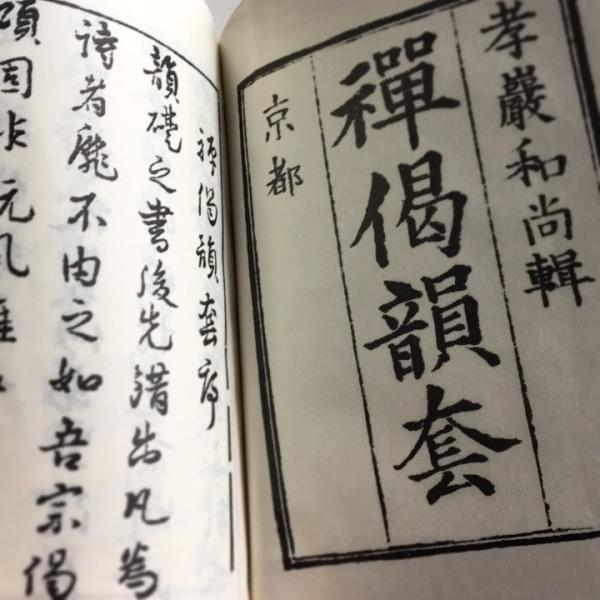 孝嚴和尚輯
禪偈韻套
京都
禪偈韻套序
韻礎之書後先錯出凡為
詩者靡不由之如吾宗偈
頌固